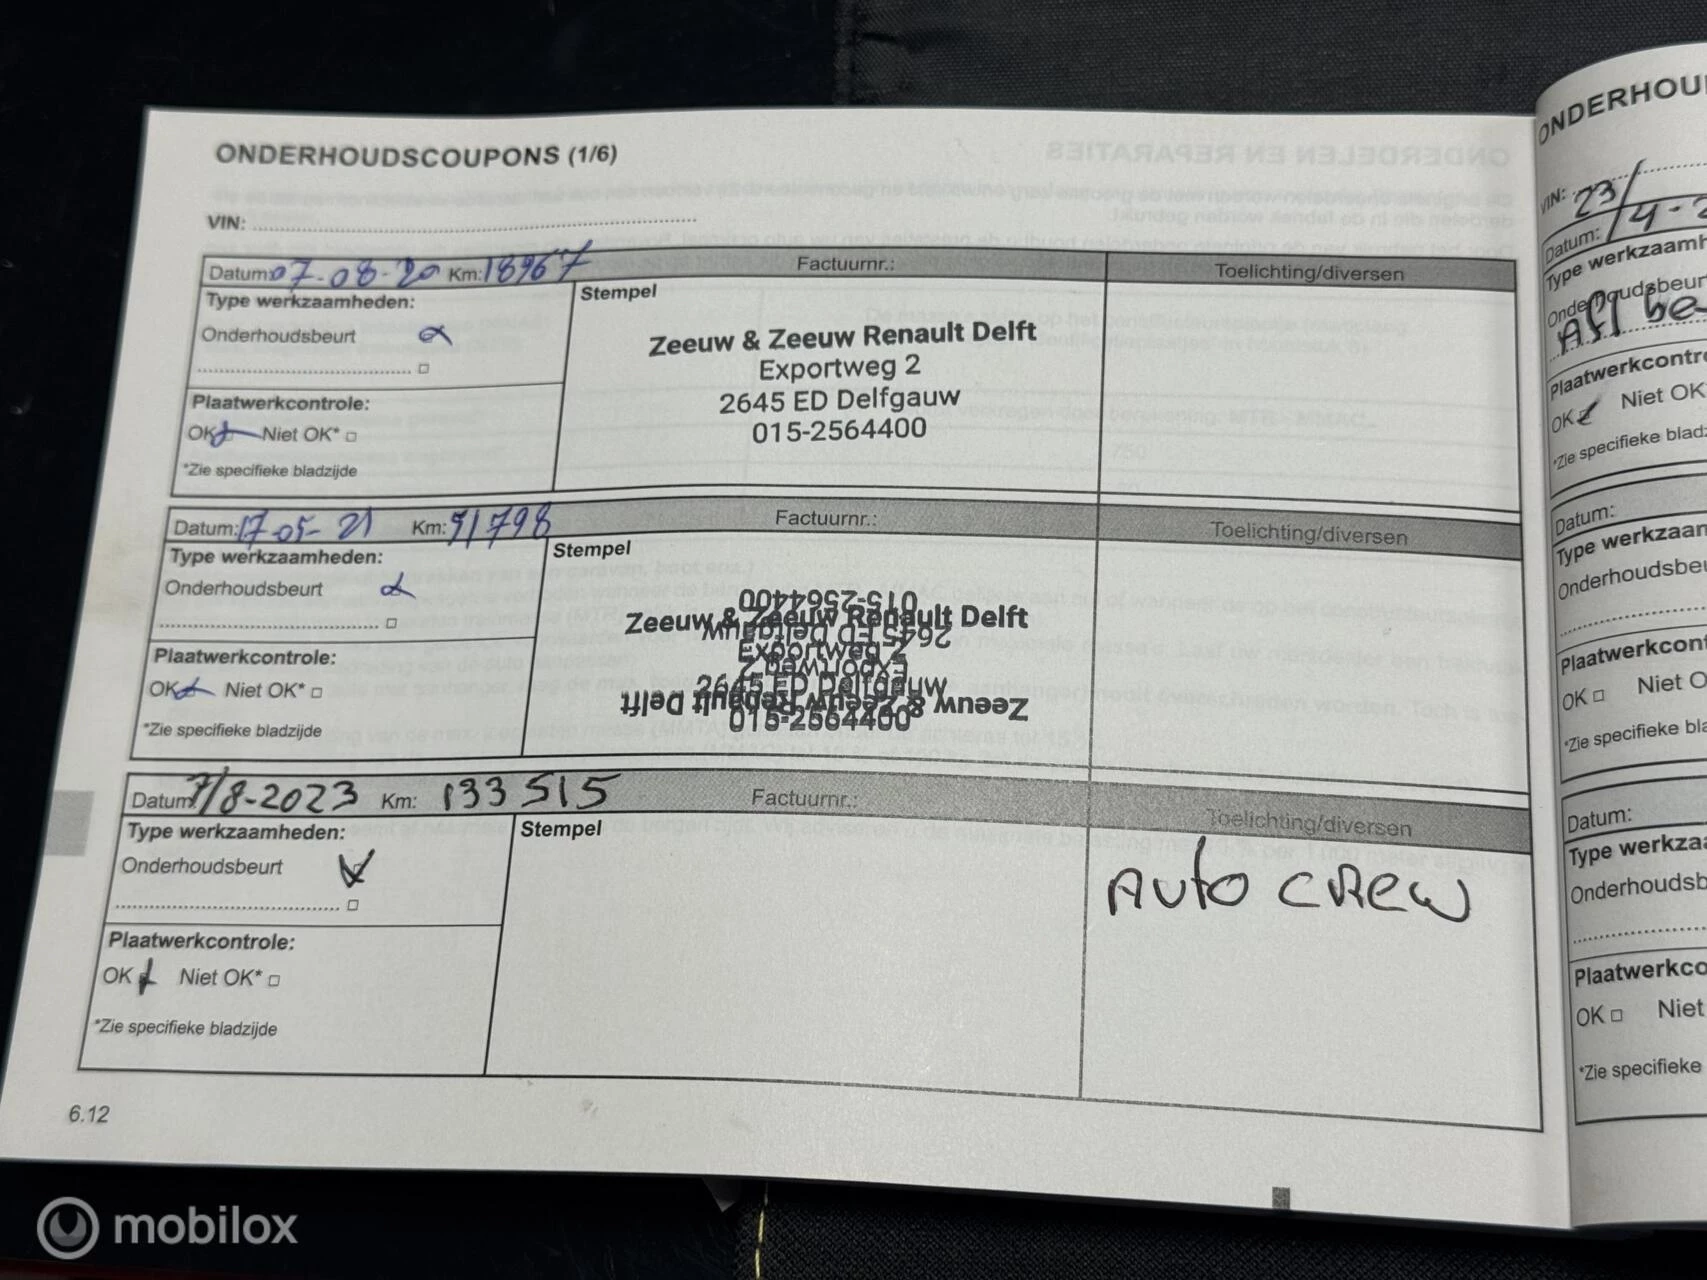 ONDERHOUDSCOUPONS (1/6)
VIN:
Datum: 07-08-20 Km: 18967 Factuurnr.: Toelichting/diversen
Type werkzaamheden:
Stempel
Onderhoudsbeurt
Zeeuw & Zeeuw Renault Delft
Exportweg 2
2645 ED Delfgauw
015-2564400
Plaatwerkcontrole:
OK Niet OK*
*Zie specifieke bladzijde
Datum: 17-05-21 Km: 51798 Factuurnr.: Toelichting/diversen
Type werkzaamheden:
Stempel
Onderhoudsbeurt
015-2564400
Zeeuw & Zeeuw Renault Delft
2645 ED Delfgauw
Exportweg 2
Exportweg 2
2645 ED Delfgauw
Zeeuw & Zeeuw Renault Delft
015-2564400
Plaatwerkcontrole:
OK Niet OK*
*Zie specifieke bladzijde
Datum: 7/8-2023 Km: 133 515 Factuurnr.: Toelichting/diversen
Type werkzaamheden:
Stempel
Onderhoudsbeurt
Auto crew
Plaatwerkcontrole:
OK Niet OK*
*Zie specifieke bladzijde
6.12
ONDERHOU
VIN: 23/
Datum: 4-2
Type werkzaamh
Onderhoudsbeurt
Afl be
Plaatwerkcontro
OK Niet OK
*Zie specifieke bladz
Datum:
Type werkzaam
Onderhoudsbeu
Plaatwerkcont
OK Niet O
*Zie specifieke bla
Datum:
Type werkza
Onderhoudsb
Plaatwerkco
OK Niet
*Zie specifieke
mobilox